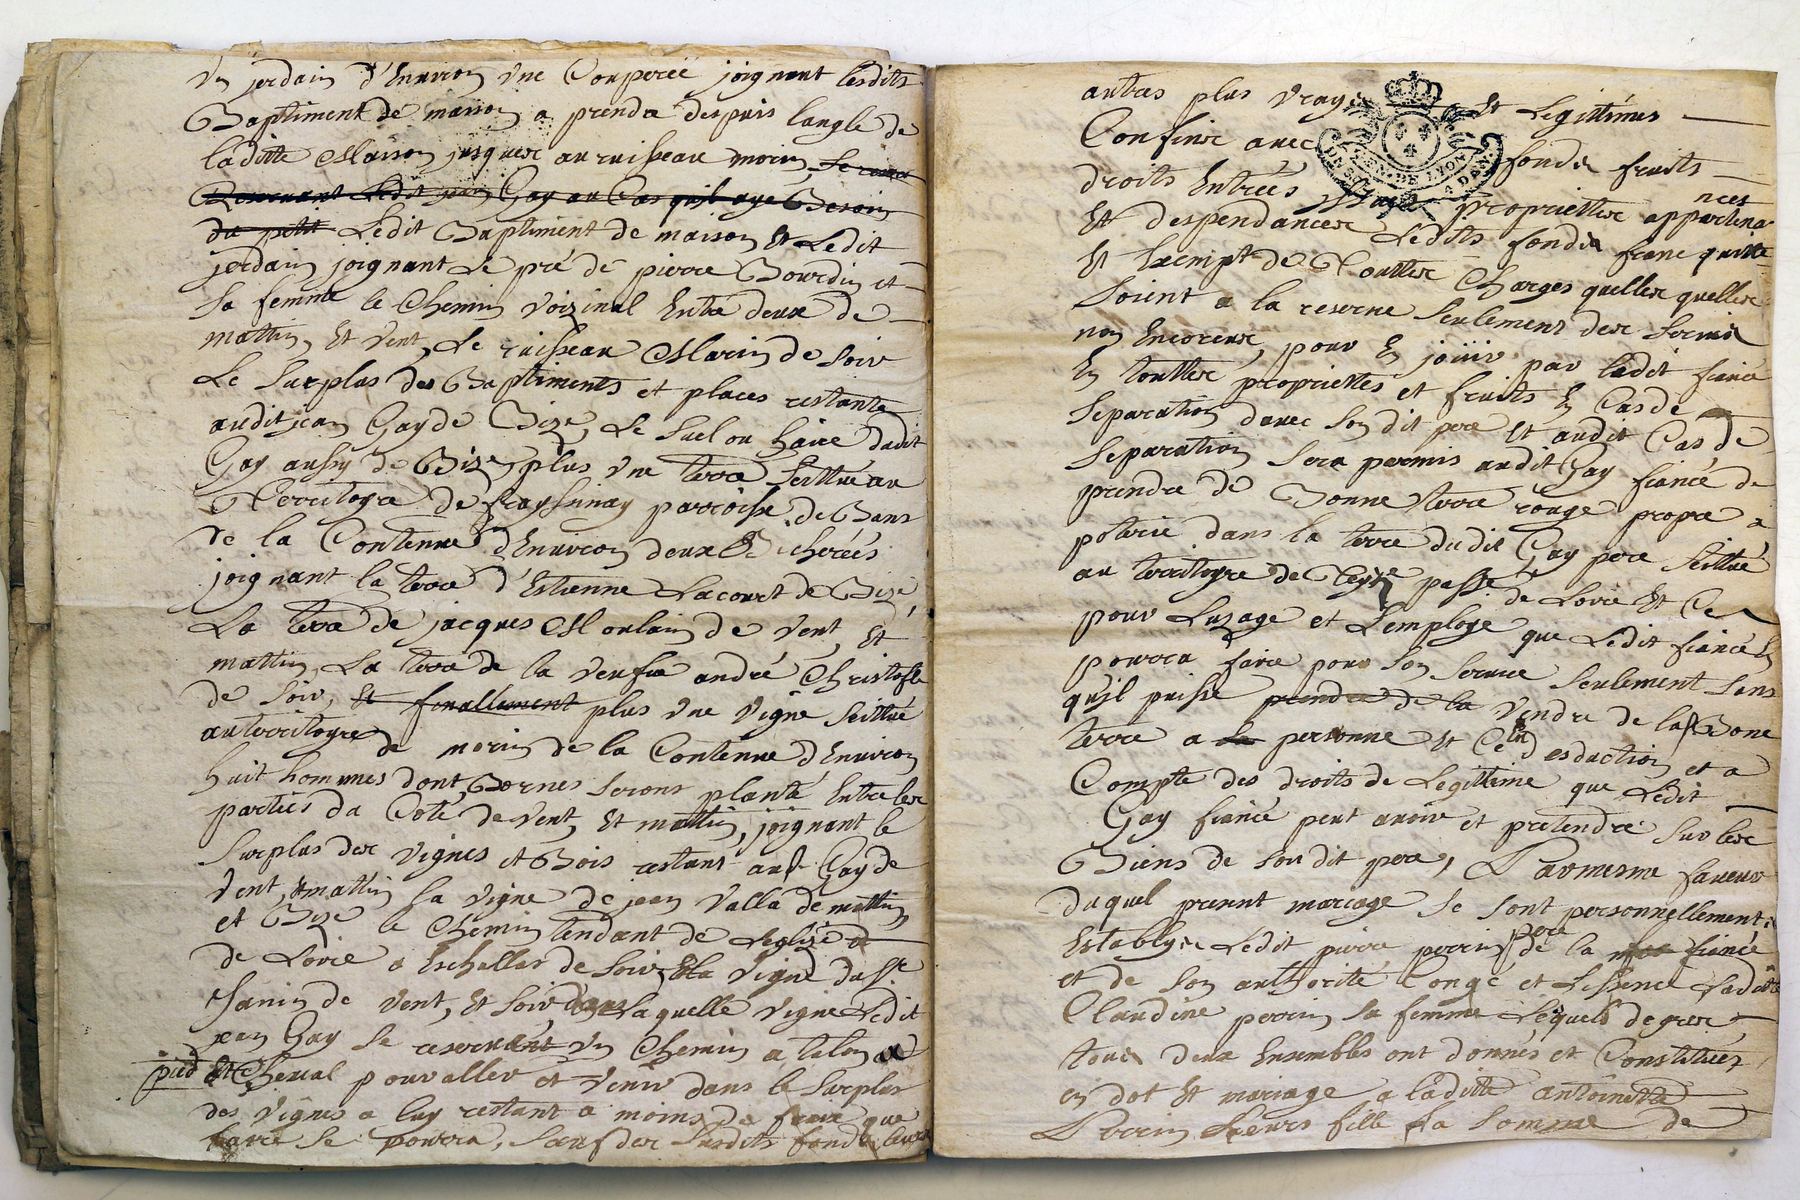 Un jerdain d'Environ une Couperée joignant lesdits
Baptiment de maison a prendre despuis langle de
laditte Maison jusques au ruisseau morin, se
Reservant Ledit jean Gay au Cas quil aye Besoin
du petit Ledit Baptiment de maison Et Ledit
jerdain joignant Le pré de pierre Bourdin et
Sa femme le Chemin voizinal Entre deux de
mattin, Et vent, Le ruisseau Marin de Soir
Le Surplus des Baptiments et places restante
audit jean Gay de Bize, Le Suel ou haire dudit
Gay aussy de Bize, plus une terre Scittué au
Territoyre de frayssinay parroisse de Bans
De la Contenue d'Environ deux Bicherées
joignant la terre d'Estienne Lacourt de Bize
La terre de jacques Moulain de vent, Et
mattin, La terre de la veufve andré Christofle
de Soir, Et finallement plus une vigne Scittué
auterritoyre de morin de la Contenue d'Environ
huit hommes dont Bornes Seront planté Entre les
parties du Coté de vent, Et mattin, joignant le
Surplus des vignes et Bois restant aud Gay de
vent, & mattin la vigne de jean valla de mattin
et Bize le Chemin tendant de Leglize
de Loire a Eschallas de Soir, Et la vigne du Sr
Janin de vent, Et Soir dans Laquelle vigne Ledit
jean Gay Se reservant Un Chemin a talon
pied Et Cheval pour aller et venir dans le Surplus
des vignes a luy restant a moins de frave que
faire Se pourra, Sauf des Susdits fonds leurs
autres plus vrays Et Legittimes
Confins avec fonds fruits
DEN. DE LYON
droits Entrées proprietter appartena
nces
Et despendances Ledits fonds franc quitte
Et Exempt de Touttes Charges quelles quelles
Soient a la reserve Seulement des Servis
non Encorus, pour En joüir par ladit fiancé
En touttes proprietés et fruits En Cas de
Separation davec Son dit pere Et audit Cas de
Separation Sera permis audit Gay fiancé de
prendre de Bonne terre rouge propre a
poterie dans la terre dudit Gay pere Scittué
au territoyre de passe de Loire Et Ce
pour Lusage et Lemploye que Ledit fiancé En
pourra faire pour Son Service Seulement Sans
quil puisse prendre de la vendre de la Bone
terre a personne Et Ce En desduction et a
Compte des droits de Legittime que Ledit
Gay fiancé peut avoir et pretendre Sur les
Biens de Son dit pere, Parmesme faveur
Duquel present mariage Se Sont personnellement
Establys Ledit pierre perrin pere de la fiancé
et de Son authorité Congé et Lissence Laditte
Claudine perrin Sa femme Lequels de gres
tous deux Ensembles ont donnés et Constitués
en dot Et mariage a laditte antoinette
Perrin Leurs fille La Somme de